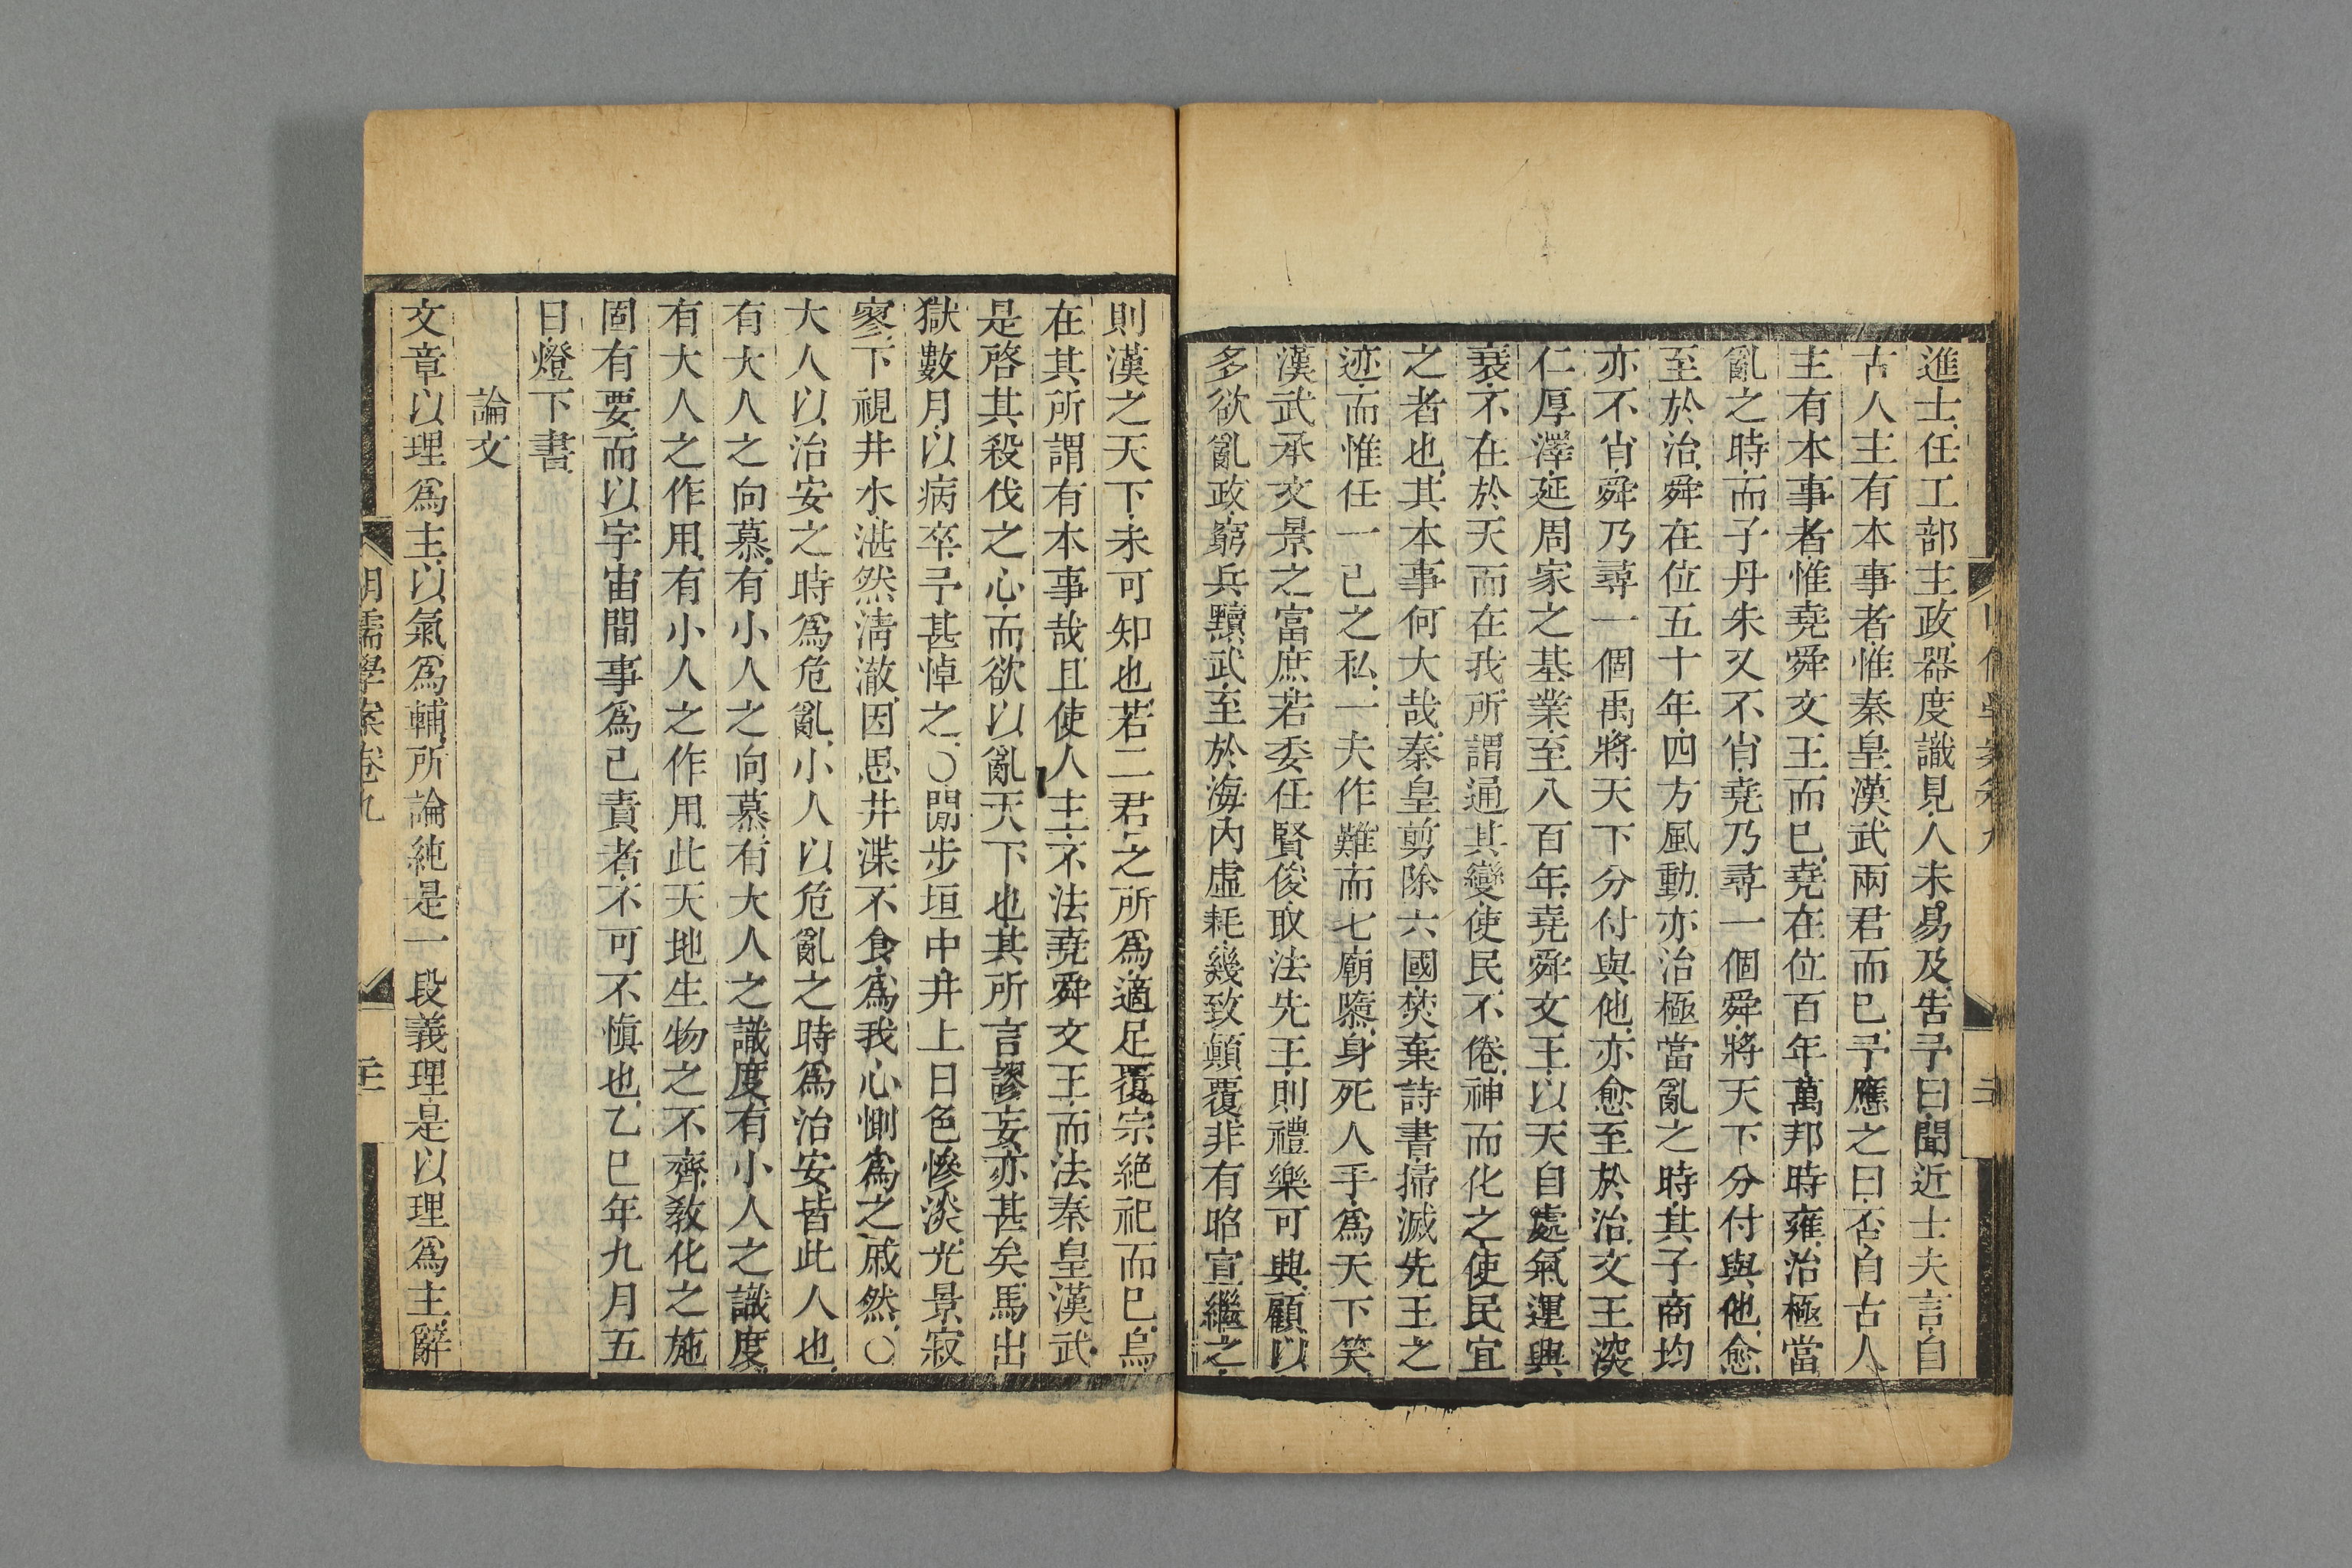 進士任工部主政器度識見人未易及告予曰聞近士夫言自
古人主有本事者惟秦皇漢武兩君而已予應之曰否自古人
主有本事者惟堯舜文王而已堯在位百年萬邦時雍治極當
亂之時而子丹朱又不肖堯乃尋一個舜將天下分付與他愈
至於治舜在位五十年四方風動亦治極當亂之時其子商均
亦不肖舜乃尋一個禹將天下分付與他亦愈至於治文王深
仁厚澤延周家之基業至八百年堯舜文王以天自處氣運興
衰不在於天而在我所謂通其變使民不倦神而化之使民宜
之者也其本事何大哉秦皇剪除六國焚棄詩書掃滅先王之
迹而惟任一己之私一夫作難而七廟隳身死人手為天下笑
漢武承文景之富庶若委任賢俊取法先王則禮樂可興顧以
多欲亂政窮兵黷武至於海內虛耗幾致顛覆非有昭宣繼之
則漢之天下未可知也若二君之所爲適足覆宗絶祀而已烏
在其所謂有本事哉且使人主不法堯舜文王而法秦皇漢武
是啓其殺伐之心而欲以亂天下也其所言謬妄亦甚矣馬出
獄數月以病卒予甚悼之○閒步垣中井上日色慘淡光景寂
寥下視井水湛然淸澈因思井渫不食爲我心惻爲之戚然○
大人以治安之時爲危亂小人以危亂之時爲治安皆此人也
有大人之向慕有小人之向慕有大人之識度有小人之識度
有大人之作用有小人之作用此天地生物之不齊敎化之施
固有要而以宇宙間事爲己責者不可不愼也乙巳年九月五
日燈下書
論文
文章以理爲主以氣爲輔所論純是一段義理是以理爲主辭
明儒學案卷九